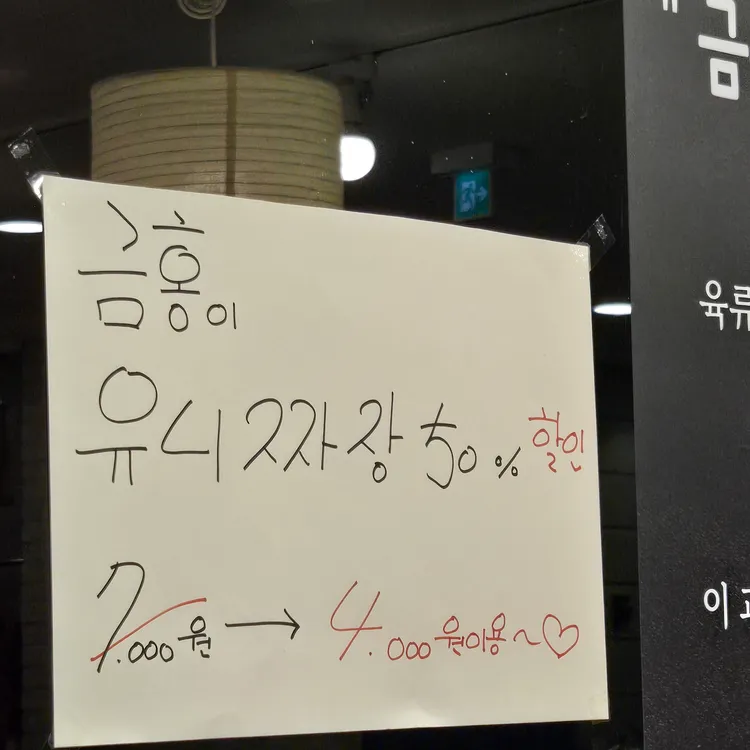 금홍이
유니짜장 50% 할인
7.000원 → 4.000원이용~♡
금
육류
이